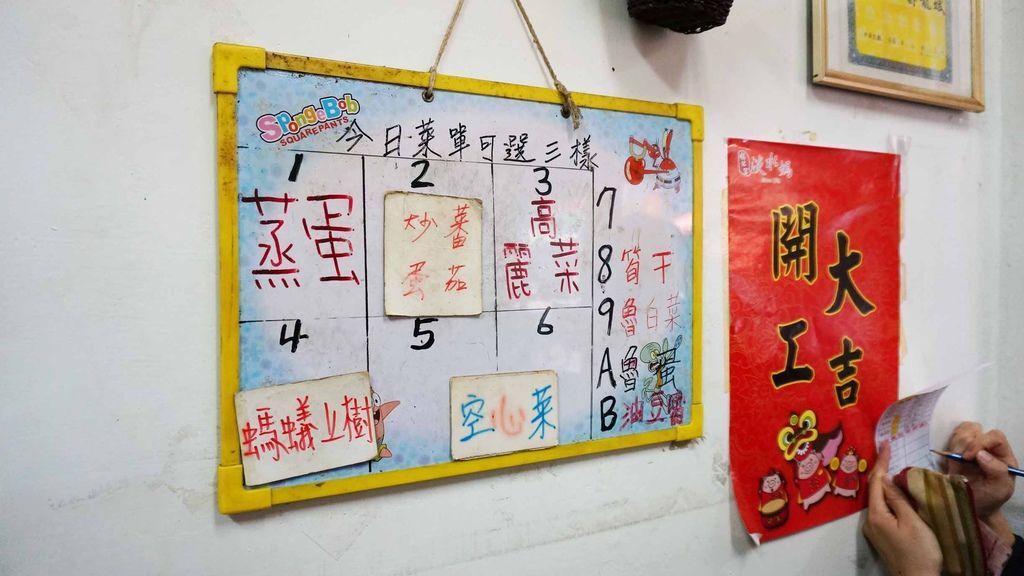 SpongeBob
SQUAREPANTS
今日菜單可選三樣
1
蒸蛋
2
炒蕃
蛋茄
3
高
麗菜
4
螞蟻上樹
5
空心菜
6
7
8 筍干
9 魯白菜
A 魯蛋
B 油豆腐
開工
大吉